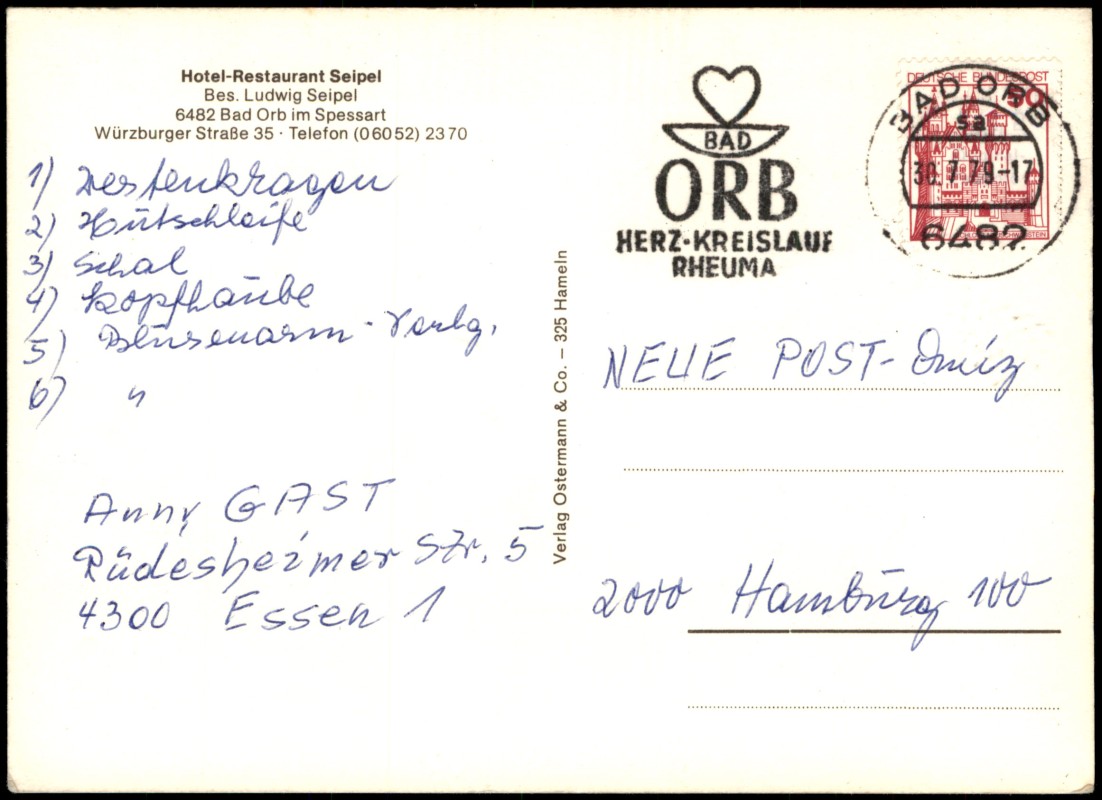 Hotel-Restaurant Seipel
Bes. Ludwig Seipel
6482 Bad Orb im Spessart
Würzburger Straße 35 · Telefon (0 60 52) 23 70
1) Westenkragen
2) Hutschleife
3) Schal
4) Kopfhaube
5) Blusenarm-
6) "
Anny GAST
Rüdesheimer Str. 5
4300 Essen 1
Verlag Ostermann & Co. – 325 Hameln
BAD
ORB
HERZ-KREISLAUF
RHEUMA
DEUTSCHE BUNDESPOST
50
BAD ORB
sa
30.7.79-17
6482
NEUE POST-Quiz
2000 Hamburg 100